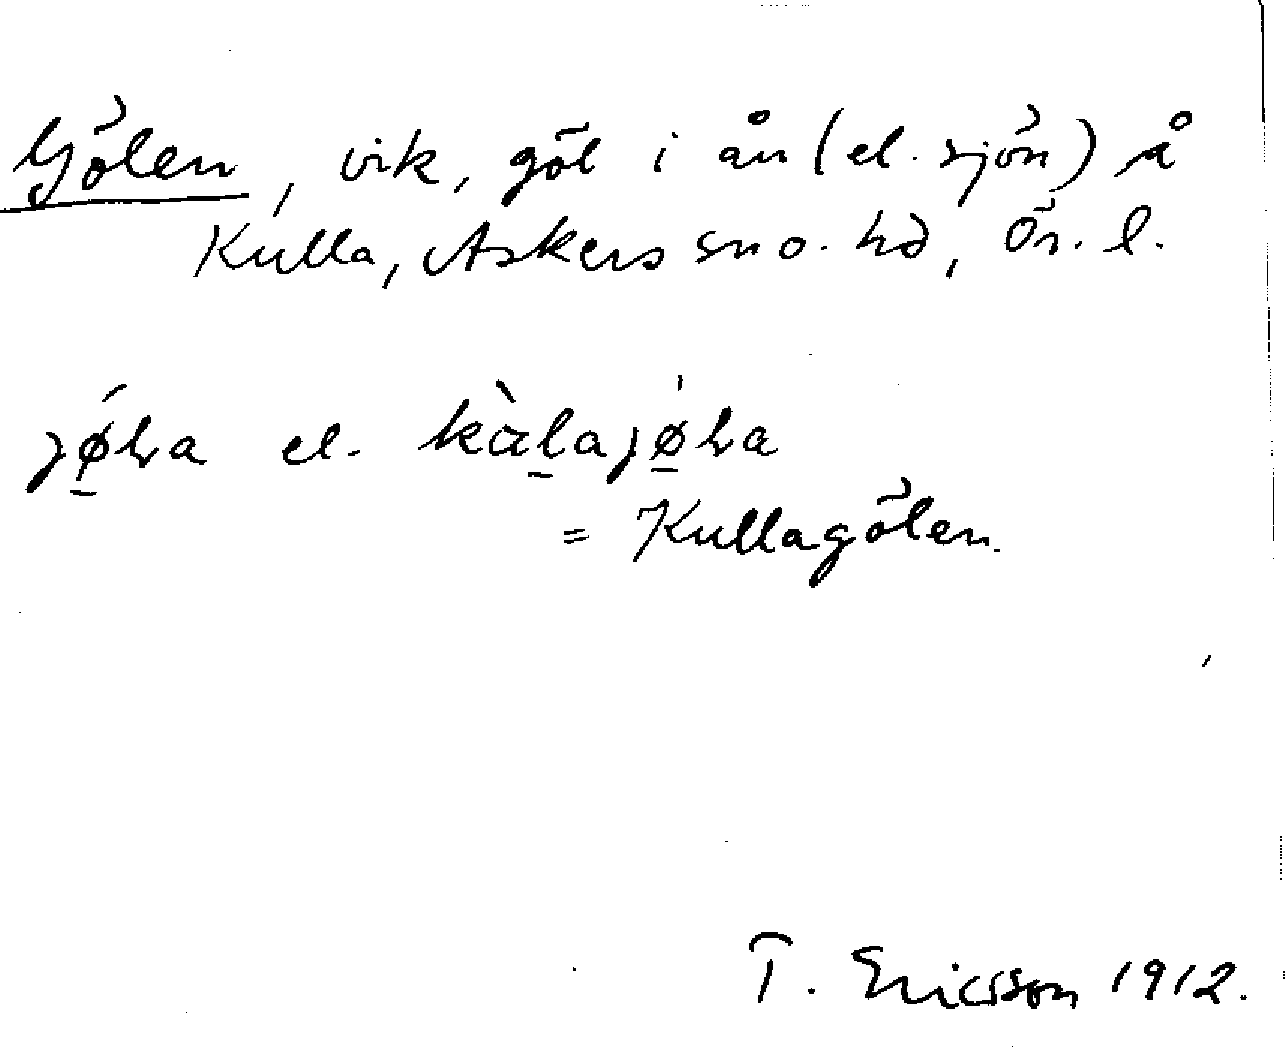 Gölen, vik, göl i ån (el. sjön) å
Kulla, Askers sn o. hd, Ör. l.
jǿ̱ɬa el. kàḻajǿ̱ɬa
= Kullagölen.
T. Ericsson 1912.